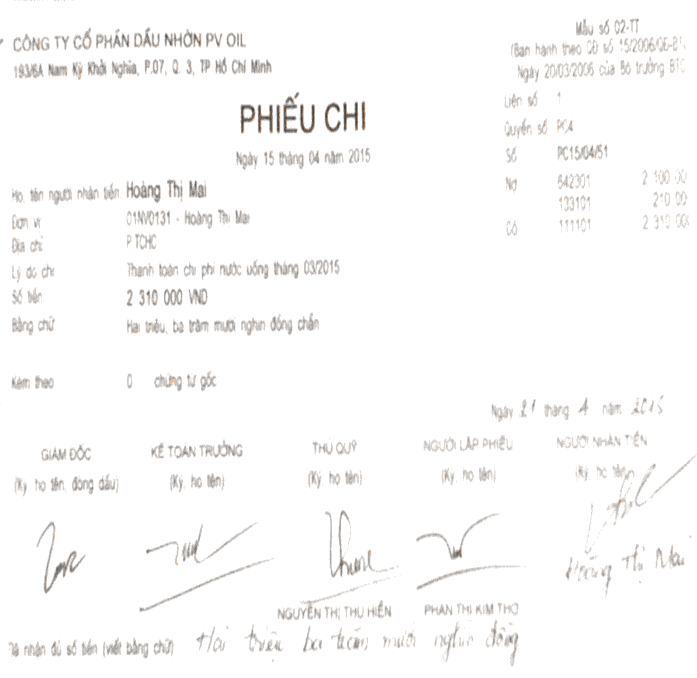 CÔNG TY CỔ PHẦN DẦU NHỜN PV OIL
193/6A Nam Kỳ Khởi Nghĩa, P.07, Q. 3, TP Hồ Chí Minh
Mẫu số 02-TT
(Ban hành theo QĐ số 15/2006/QĐ-BTC
Ngày 20/03/2006 của Bộ trưởng BTC
PHIẾU CHI
Ngày 15 tháng 04 năm 2015
Liên số 1
Quyển số PC4
Số PC15/04/51
Nợ 642301 2 100 00
133101 210 00
Có 111101 2 310 00
Họ, tên người nhận tiền Hoàng Thị Mai
Đơn vị 01NV0131 - Hoàng Thị Mai
Địa chỉ P TCHC
Lý do chi Thanh toán chi phí nước uống tháng 03/2015
Số tiền 2 310 000 VND
Bằng chữ Hai triệu, ba trăm mười nghìn đồng chẵn
Kèm theo 0 chứng từ gốc
Ngày 21 tháng 4 năm 2015
GIÁM ĐỐC KẾ TOÁN TRƯỞNG THỦ QUỸ NGƯỜI LẬP PHIẾU NGƯỜI NHẬN TIỀN
(Ký, họ tên, đóng dấu) (Ký, họ tên) (Ký, họ tên) (Ký, họ tên) (Ký, họ tên)
Hoàng Thị Mai
NGUYỄN THỊ THU HIỀN PHAN THỊ KIM THO
Đã nhận đủ số tiền (viết bằng chữ) Hai triệu ba trăm mười nghìn đồng